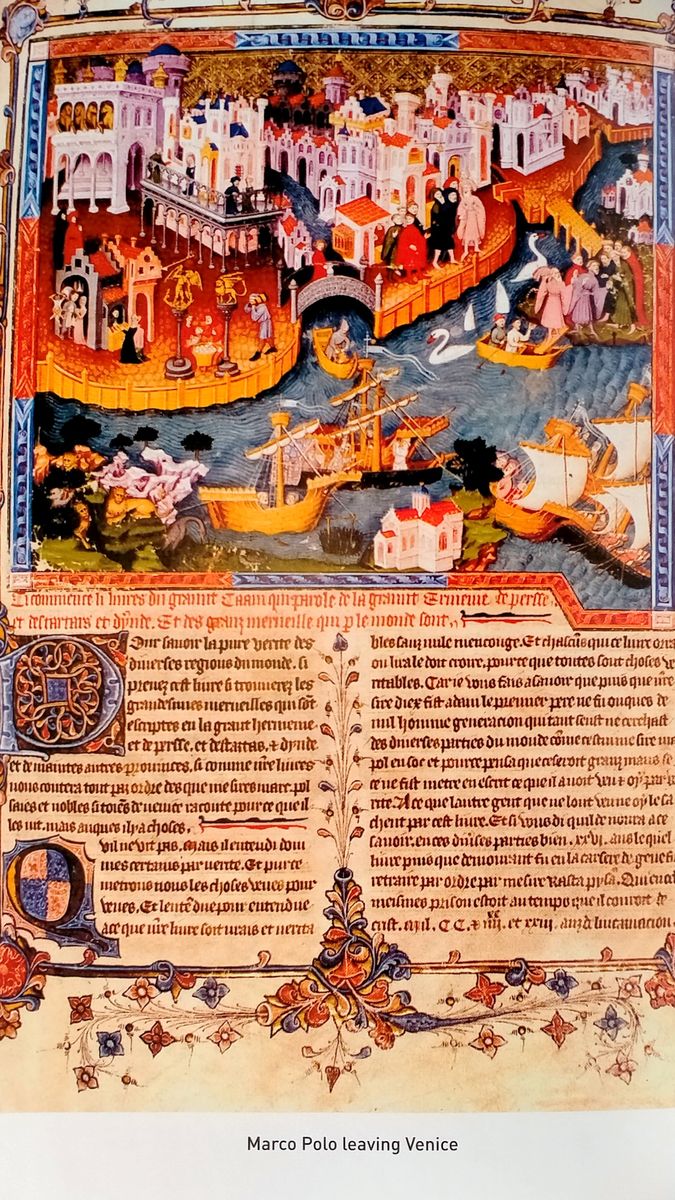 Ci commence li livres du graunt Caam qui parole de la graunt Ermenie de persse
et des tartars et dynde. Et des granz merveilles qui p le monde sont,
Pour savoir la pure verite des
diverses regions du monde. si
prenez cest livre si trouverez les
grandesmes merveilles qui sont
escriptes en la grant hermenie
et de persse. et destartas. & dynde
et de maintes autres provinces. si comme nre livres
nous contera tout par ordre des que me sires marc pol
saies et nobles citoiens de venice raconte pour ce que il
les vit. mais auques il y a choses,
Qvil ne vit pas. Mais il entendi dom
mes certains par verite. Et pur ce
metrons nous les choses veues pour
veues. Et lentendue pour entendue
a ce que nre livre soit vrais et verita
bles sanz nule mencouge. Et chascuns qui ce livre orra
ou lira le doit croire. pour ce que toutes sont choses ve
ritables. Car ie vous fais a savoir que puis que nre
sire diex fist adam le premier pere ne fu onques de
nul homme generacion qui tant seust ne cerchast
des diverses parties du monde come cestui me sire marc
pol en soe et pour ce pensa que ce seroit granz maus se
ce ne fist metre en escrit ce que il avoit veu & oy par ve
rite. A ce que lautre gent que ne lont veu ne oy le sa
chent par cest livre. Et si vous di qui l demoura a ce
savoir. en ces diverses parties bien .xxvi. ans le quel
livre puis que demourant fu en la carcere de genes fi
retraire par ordre par mesire Rasta pysa. Qui en ce
meismes prison estoit au temps que il couroit de
crist. Mil. C C. & xx iiii. et xviii. anz de lincarnacion.
Marco Polo leaving Venice